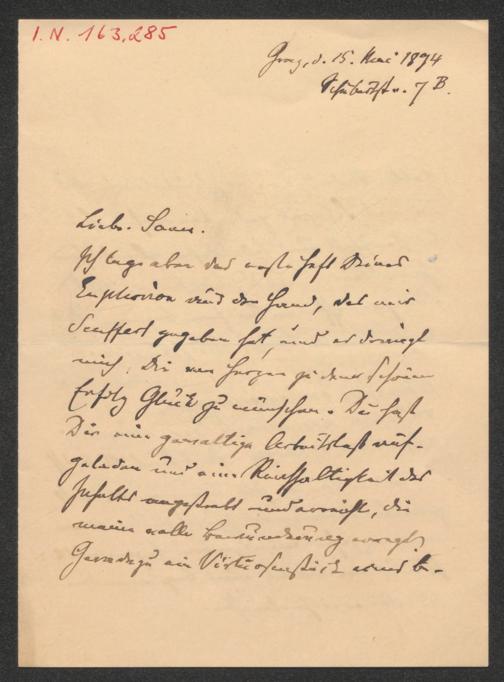 I. N. 163.285
Graz, d. 15. Mai 1894
Schubertstr. 7 B.
Lieber Sauer.
Ich lege eben das erste Heft Deines
Euphorion aus der Hand, das mir
Seuffert gegeben hat, und es drängt
mich, Dir von Herzen zu dem schönen
Erfolg Glück zu wünschen. Du hast
Dir eine gewaltige Arbeitslast auf-
geladen und eine Reichhaltigkeit des
Inhalts angestrebt und erreicht, die
meine volle Bewunderung erregt.
Geradezu ein Virtuosenstück